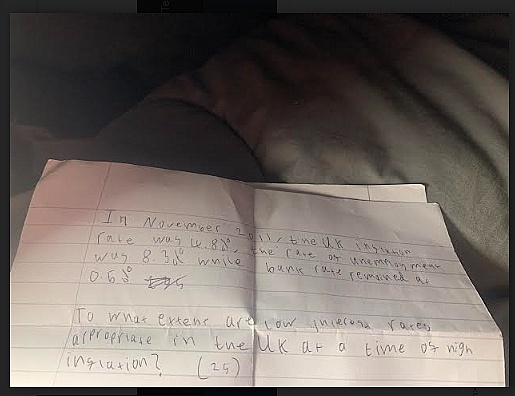 In November 2011, the UK inflation
rate was 4.8%, the rate of unemployment
was 8.3% while bank rate remained at
0.5%
To what extent are low interest rates
appropriate in the UK at a time of high
inflation? (25)